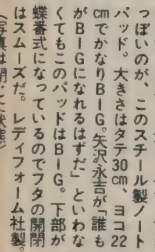 っぽいのが、このスチール製ノート
パッド。大きさはタテ30cm、ヨコ22
cmでかなりBIG。矢沢永吉が「誰も
がBIGになれるはずだ」といわな
くてもこのパッドはBIG。下部が
蝶番式になっているのでフタの開閉
はスムーズだ。レディフォーム社製。
(写真は閉じた状態)